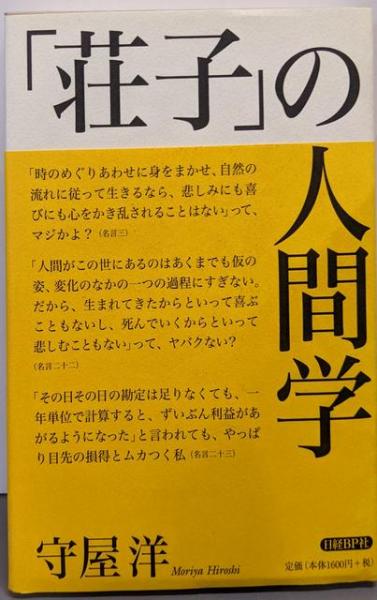 「荘子」の
人間学
「時のめぐりあわせに身をまかせ、自然の
流れに従って生きるなら、悲しみにも喜
びにも心をかき乱されることはない」って、
マジかよ？（名言三）
「人間がこの世にあるのはあくまでも仮の
姿、変化のなかの一つの過程にすぎない。
だから、生まれてきたからといって喜ぶ
こともないし、死んでいくからといって
悲しむこともない」って、ヤバクない？
（名言二十二）
「その日その日の勘定は足りなくても、一
年単位で計算すると、ずいぶん利益があ
がるようになった」と言われても、やっぱ
り目先の損得とムカつく私（名言二十三）
守屋洋
Moriya Hiroshi
日経BP社
定価（本体1600円+税）